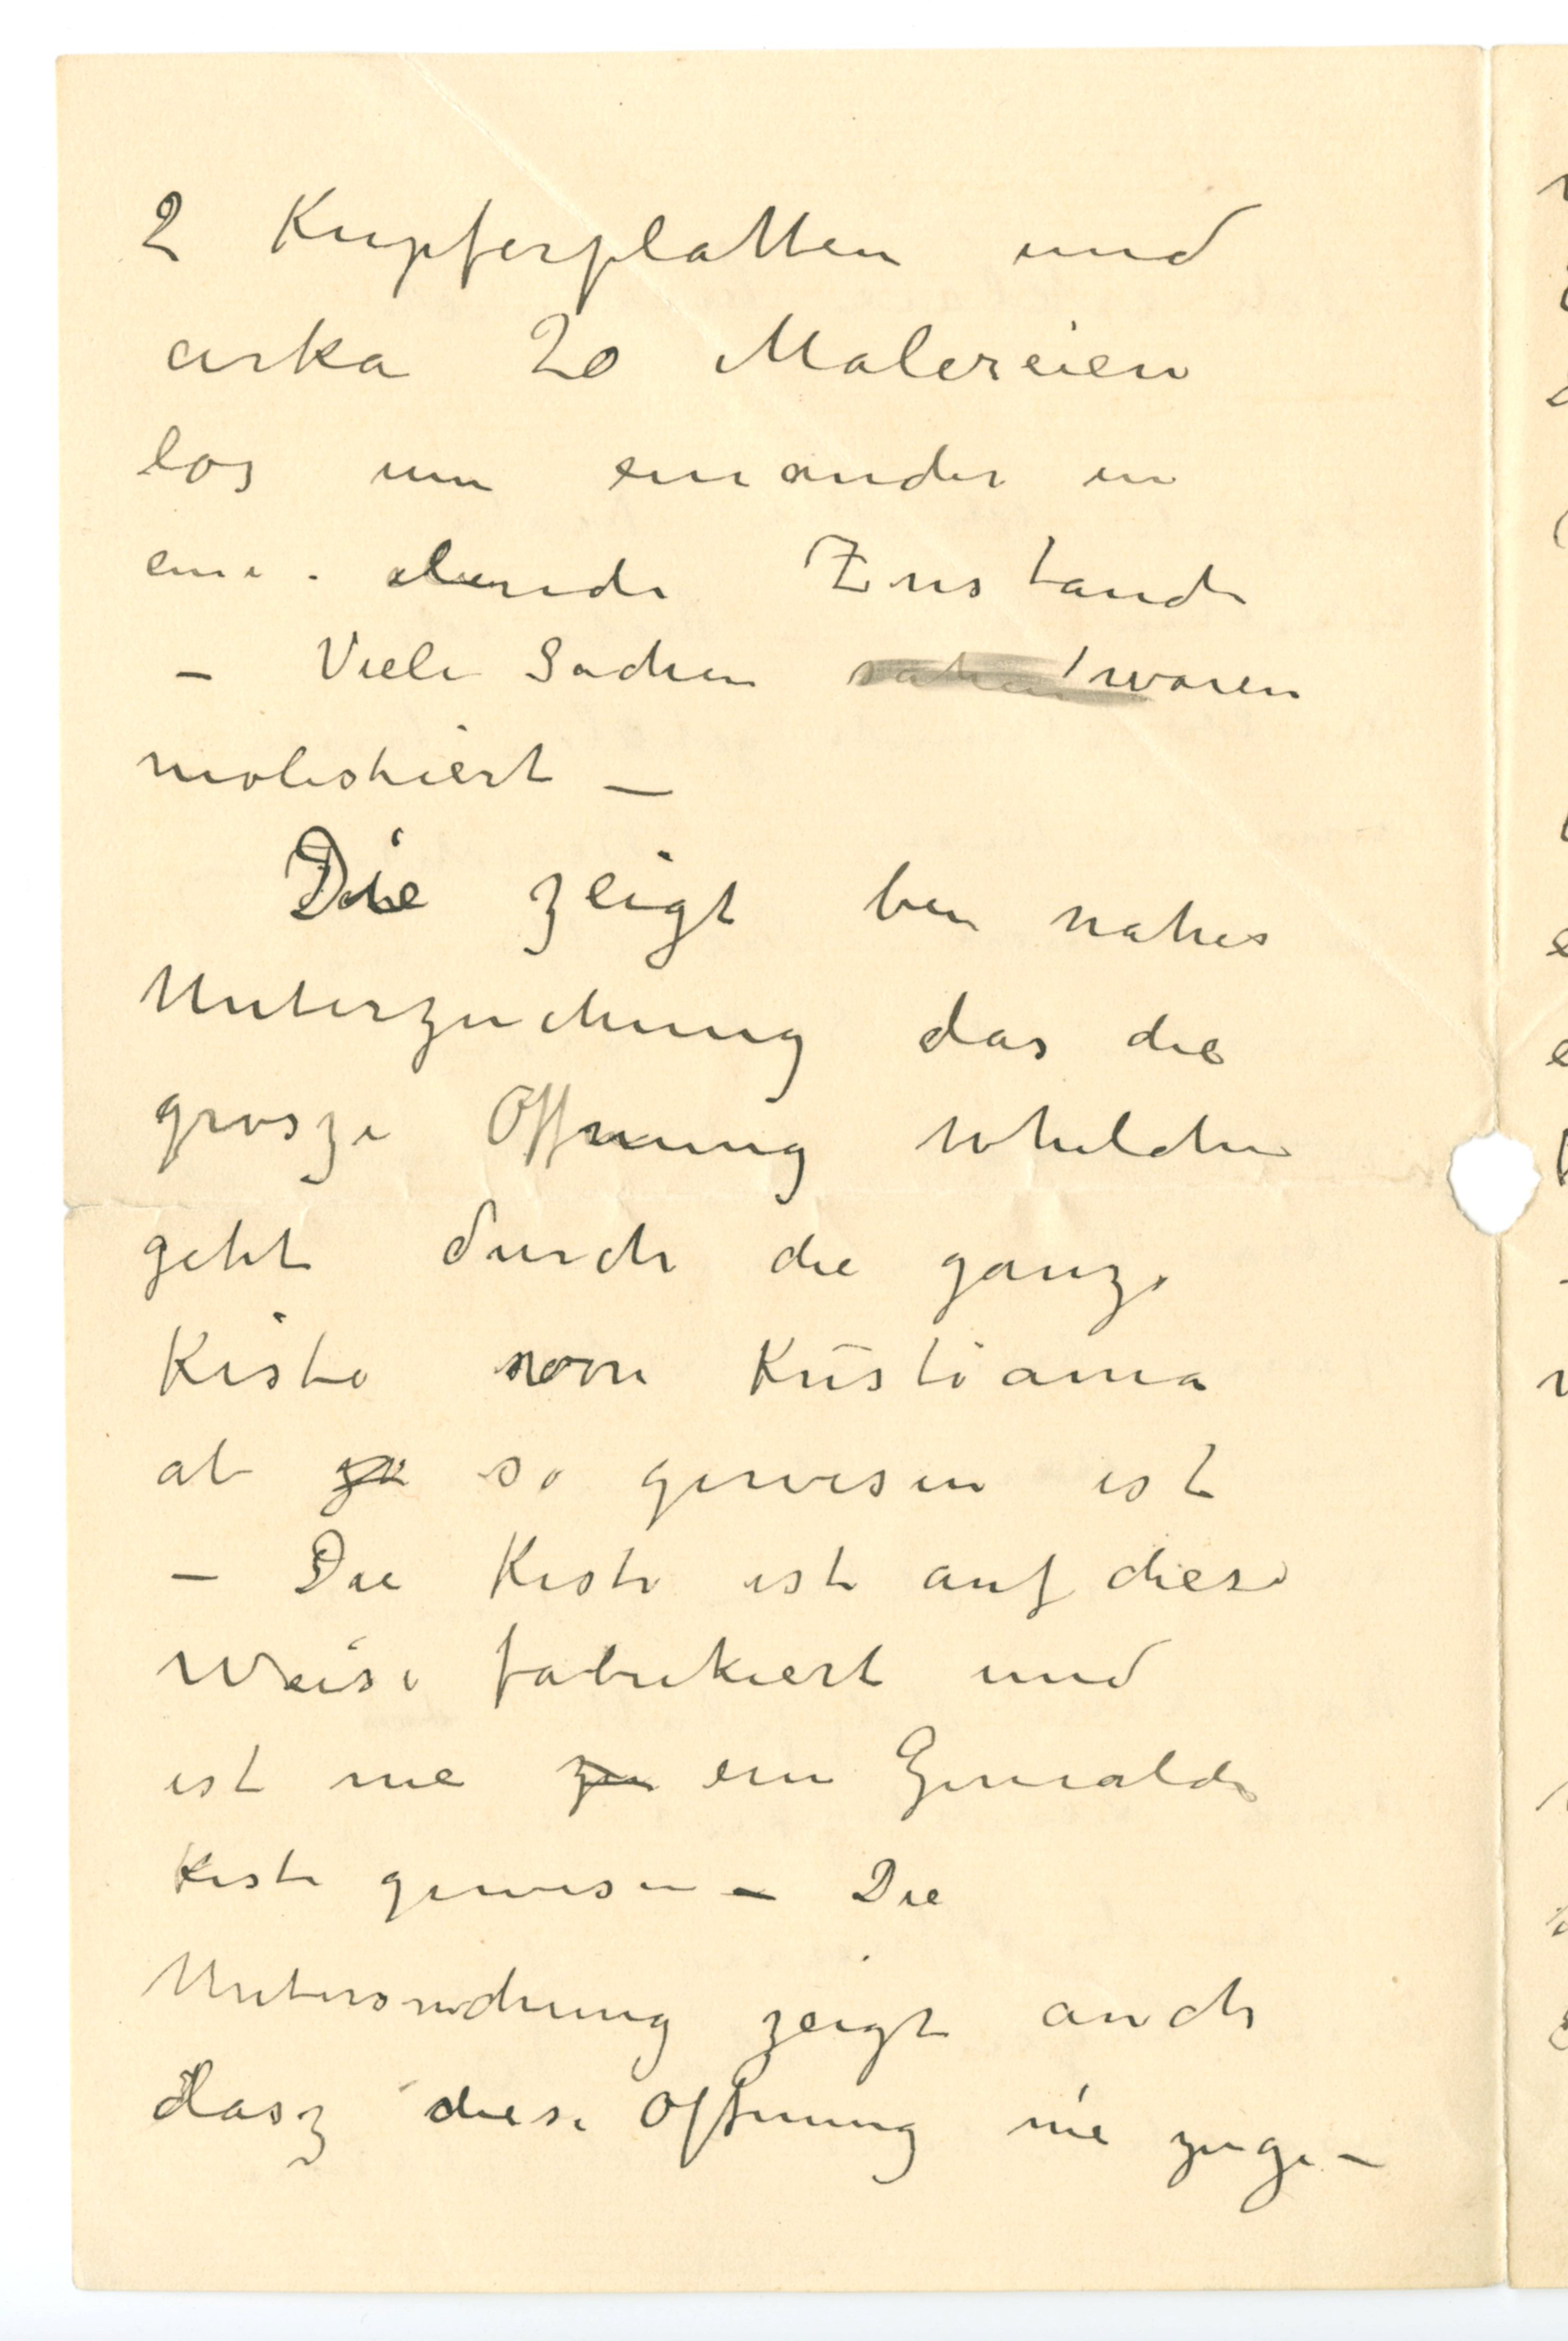 2 Kupferplatten und
cirka 20 Malereien
los um einander in
eine elende Zustande
– Viele Sachen waren
molestiert –
Die zeigt bei nahes
Unterzuchung das die
grosze Offnung whelche
geht durch die ganze
Kiste von Kristiania
ab so gewesen ist
– Die Kiste ist auf diese
Weise fabrikiert und
ist nie ein Gemalde
Kiste gewesen – Die
Untersuchung zeigt auch
dasz diese Offnung nie zuge–